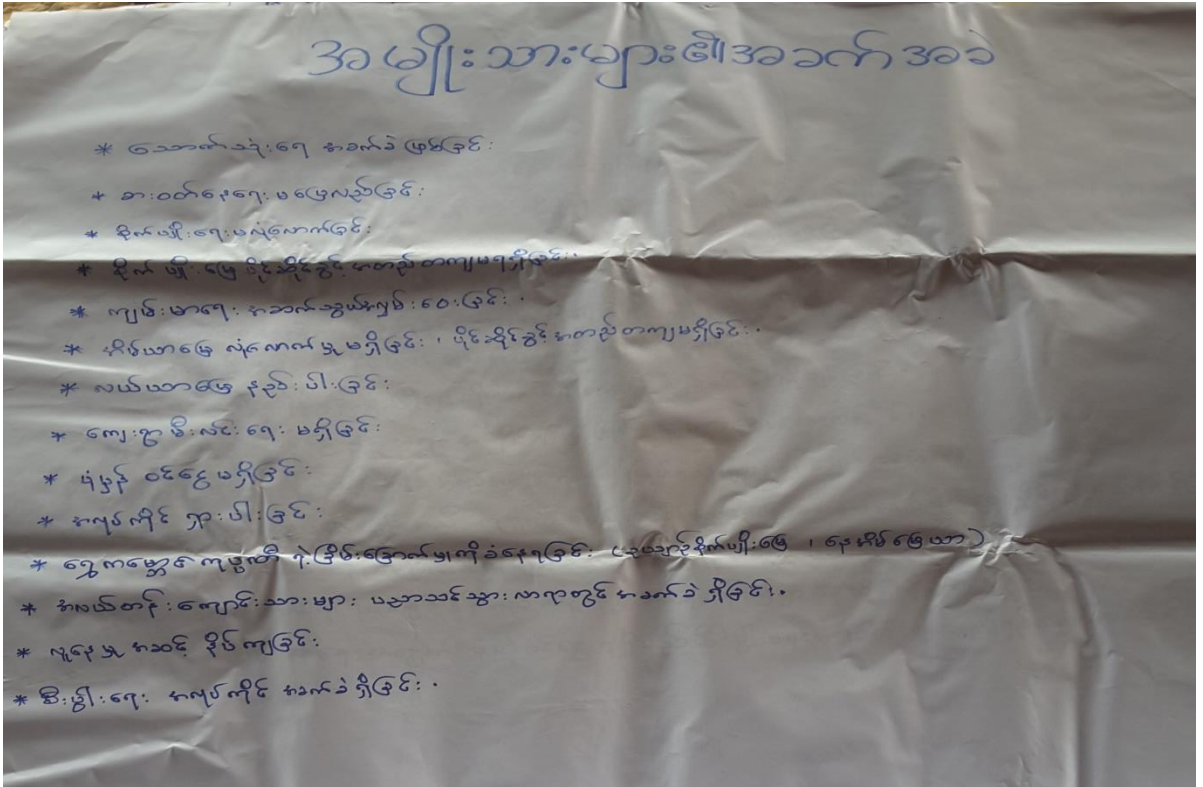 အမျိုးသားများ၏အခက်အခဲ
* သောက်သုံးရေ အခက်ခဲဖြစ်ခြင်း
* စားဝတ်နေရေး မပြေလည်ခြင်း
* စိုက်ပျိုးရေးမလုံလောက်ခြင်း
* စိုက်ပျိုးမြေ ပိုင်ဆိုင်ခွင့် အတည်တကျမရရှိခြင်း။
* ကျမ်းမာရေး အဆက်သွယ်အလှမ်းဝေးခြင်း။
* အိမ်ယာမြေ လုံလောက်မှုမရှိခြင်း၊ ပိုင်ဆိုင်ခွင့်အတည်တကျမရှိခြင်း။
* လယ်ယာမြေ နည်းပါးခြင်း
* ကျေးရွာမီးလင်းရေး မရှိခြင်း
* ပုံမှန် ဝင်ငွေမရှိခြင်း
* အလုပ်ကိုင် ရှားပါးခြင်း
* ရွှေကမ္ဘောဇကုမ္ပဏီ ရဲ့ခြိမ်းခြောက်မှုကိုခံနေရခြင်း (ဥယျာဉ်စိုက်ပျိုးမြေ ၊ နေအိမ်မြေယာ)
* အလယ်တန်းကျောင်းသားများ ပညာသင်သွားလာရာတွင် အခက်ခဲရှိခြင်း။
* လူနေမှု အဆင့် နိမ့်ကျခြင်း
* စီးပွါးရေး အလုပ်ကိုင် အခက်ခဲရှိခြင်း။